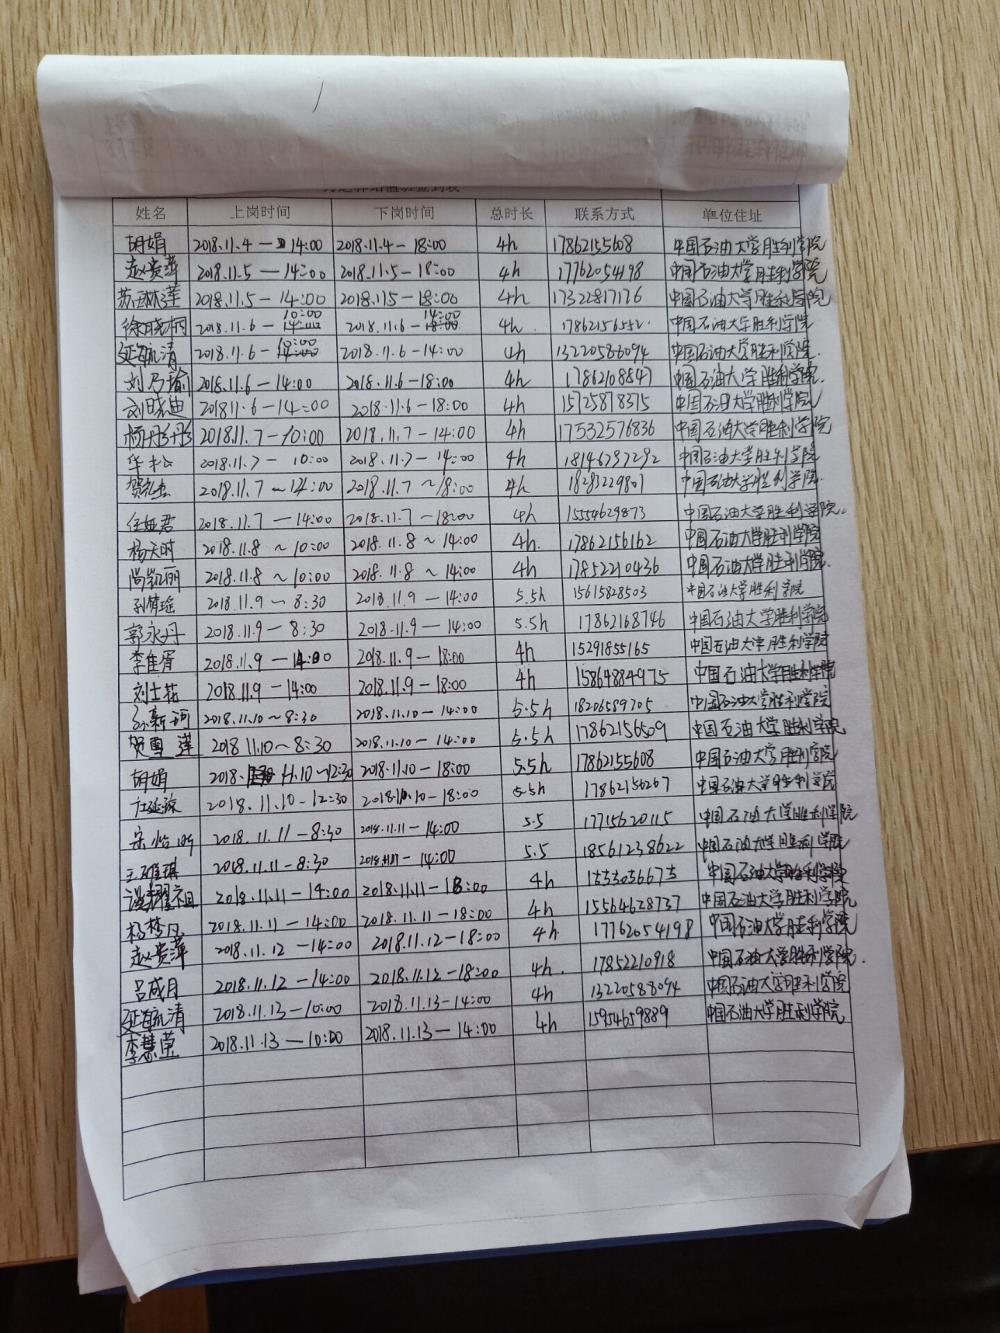 姓名 上岗时间 下岗时间 总时长 联系方式 单位住址
胡娟 2018.11.4 — 14:00 2018.11.4 — 18:00 4h 17862155608 中国石油大学胜利学院
赵贵萍 2018.11.5 — 14:00 2018.11.5 — 18:00 4h 17762054198 中国石油大学胜利学院
苏琳莲 2018.11.5 — 14:00 2018.11.5 — 18:00 4h 17322817176 中国石油大学胜利学院
徐晓桐 2018.11.6 — 10:00 2018.11.6 — 14:00 4h. 17862156552. 中国石油大学胜利学院
延毓清 2018.11.6 — 10:00 2018.11.6 — 14:00 4h 13220586094 中国石油大学胜利学院.
刘乃瑜 2018.11.6 — 14:00 2018.11.6 — 18:00 4h 17862108847 中国石油大学胜利学院.
刘晓迪 2018 11.6 — 14:00 2018.11.6 — 18:00 4h 15725878375 中国石油大学胜利学院
杨丹丹 2018.11.7 — 10:00 2018.11.7 — 14:00 4h 17532576836 中国石油大学胜利学院
华松 2018.11.7 — 10:00 2018.11.7 — 14:00 4h 18146737292 中国石油大学胜利学院
2018.11.7 ~ 14:00 2018.11.7 ~ 18:00 4h 18283229807 中国石油大学胜利学院.
任娅君 2018.11.7 — 14:00 2018.11.7 — 18:00 4h 15554629873 中国石油大学胜利学院.
杨天时 2018.11.8 ~ 10:00 2018.11.8 ~ 14:00 4h. 17862156162 中国石油大学胜利学院
尚凯丽 2018.11.8 ~ 10:00 2018.11.8 ~ 14:00 4h 17852210436 中国石油大学胜利学院.
孙梦瑶 2018.11.9 — 8:30 2018.11.9 — 14:00 5.5h 15615828503 中国石油大学胜利学院
郭永丹 2018.11.9 — 8:30 2018.11.9 — 14:00 5.5h 17862168746 中国石油大学胜利学院
李佳眉 2018.11.9 — 14:00 2018.11.9 — 18:00 4h 15291855165 中国石油大学胜利学院
刘士花 2018.11.9 — 14:00 2018.11.9 — 18:00 4h 15864884975 中国石油大学胜利学院
孙新珂 2018.11.10 ~ 8:30 2018.11.10 — 14:00 5.5h 18206589705 中国石油大学胜利学院
贺雪莲 2018 11.10 ~ 8:30 2018.11.10 — 14:00 5.5h 17862156509 中国石油大学胜利学院
胡娟 2018. 11.10 — 12:30 2018.11.10 — 18:00 5.5h 17862155608 中国石油大学胜利学院
2018.11.10 — 12:30 2018.11.10 — 18:00 5.5h 17862156267 中国石油大学胜利学院
宋怡昕 2018.11.11 — 8:30 2018.11.11 — 14:00 5.5 17715620115 中国石油大学胜利学院
王雅琪 2018.11.11 — 8:30 2018.11.11 — 14:00 5.5 18561238622 中国石油大学胜利学院
谈耀祖 2018.11.11 — 14:00 2018.11.11 — 18:00 4h 中国石油大学胜利学院
杨梦凡 2018.11.11 — 14:00 2018.11.11 — 18:00 4h 15564628737 中国石油大学胜利学院
赵贵萍 2018.11.12 — 14:00 2018.11.12 — 18:00 4h 17762054198 中国石油大学胜利学院
吕成月 2018.11.12 — 14:00 2018.11.12 — 18:00 4h. 17852210918 中国石油大学胜利学院.
延毓清 2018.11.13 — 10:00 2018.11.13 — 14:00 4h 13220588094 中国石油大学胜利学院
李慧荣 2018.11.13 — 10:00 2018.11.13 — 14:00 4h 15954659889 中国石油大学胜利学院